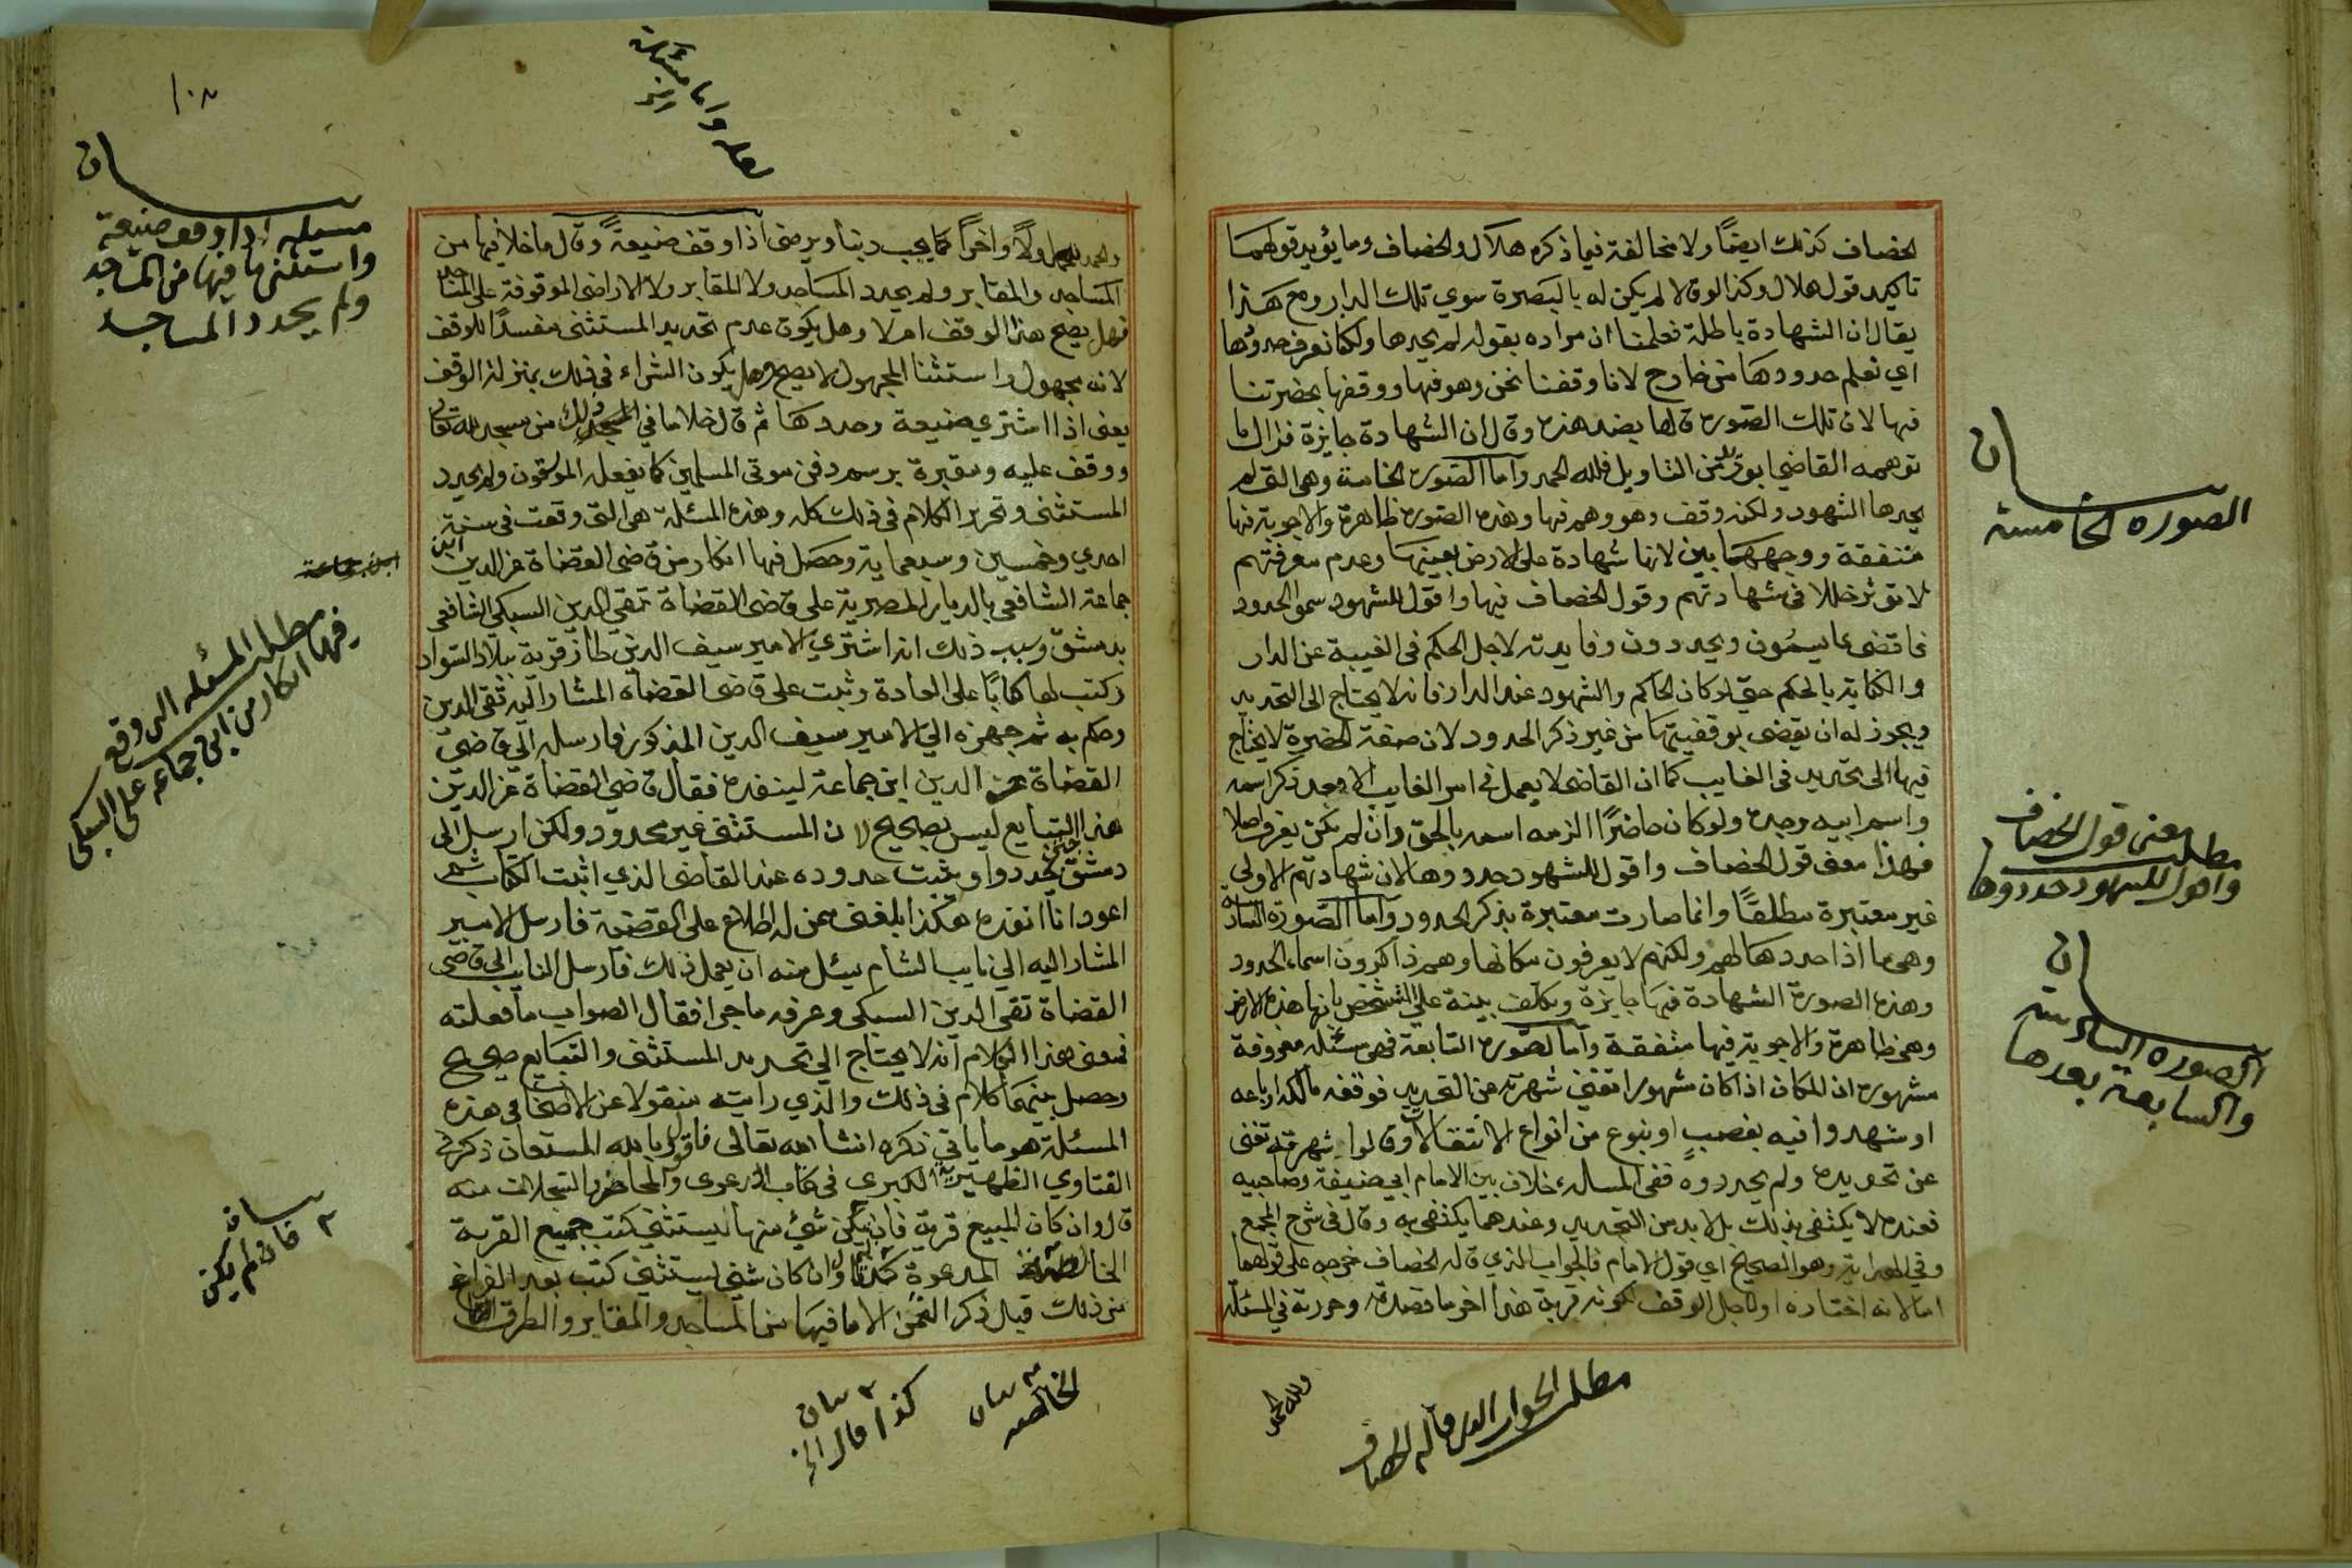 الخصاف كذلك ايضًا ولا مخالفة فيما ذكره هلال والخصاف وما يؤيد قولهما
تاكيد قول هلال وكذا لو قالا لم يكن له بالبصرة سوي تلك الدار ومع هذا
يقال ان الشهادة باطلة فعلمنا ان مراده بقوله لم يحدها ولكنا نعرف حدودها
اي نعلم حدودها من خارج لا نا وقفنا نحن وهو فيها ووقفها بحضرتنا
فيها لان تلك الصورة قالها بضد هذه وقال ان الشهادة جايزة فزال ما
توهمه القاضي ابو زيد من التاويل فلله الحمد واما الصورة الخامسة وهي التي لم
يحدها الشهود ولكنه وقف وهو وهم فيها وهذه الصورة ظاهرة والاجوبة فيها
متفقة ووجههما بين لانها شهادة على الارض بعينها وعدم معرفتهم
لا تؤثر خللا في شهادتهم وقول الخصاف فيها واقول للشهود سموا الحدود
فاقضى بما يسمون ويحددون وفايدته لاجل الحكم في الغيبة عن الدار
والكتابة بالحكم حتي لو كان الحاكم والشهود عند الدار فانه لا يحتاج الى التحديد
ويجوز له ان يقضى بوقفيتها من غير ذكر الحدود لان صفة الحضرة لا يحتاج
فيها الى تحديد في الغايب كما ان القاضى لا يعمل في امر الغايب الا وبعد ذكر اسمه
واسم ابيه وجده ولو كان حاضرًا الزمه اسمه بالحق وان لم يكن يعرف اصلا
فهذا معنى قول الخصاف واقول للشهود حددوها لان شهادتهم الاولي
غير معتبرة مطلقًا وانما صارت معتبرة بذكر الحدود واما الصورة السادسة
وهي ما اذا حددها لهم ولكنهم لا يعرفون مكانها وهم ذاكرون اسماء الحدود
وهذه الصورة الشهادة فيها جايزة ويكلف بينة على الشخص بانها هذه الارض
وهي ظاهرة والاجوبة فيها متفقة واما الصورة السابعة فهي مسئلة معروفة
مشهورة ان المكان اذا كان مشهورا تغني شهرته عن التحديد فوقفه مالكه او باعه
او شهدوا فيه بغصب او بنوع من انواع الانتقالات وقالوا شهرته تغنى
عن تحديده ولم يحددوه ففي المسالة خلاف بين الامام ابي حنيفة وصاحبيه
فعنده لا يكتفى بذلك بل لا بد من التحديد وعندهما يكتفى به وقال في شرح المجمع
وفي الهداية وهو الصحيح اي قول الامام فالجواب الذي قاله الخصاف خرجه على قولهما
اما لانه اختاره او لاجل الوقف لكونه قربة هذا اخر ما قصدته وحررته في المسئلة
ولله الحمد
الصورة الخامسة
مطلب معنى قول الخصاف
واقول للشهود حددوها
الصورة السادسة
والسابعة بعدها
مطلب الجواب الذي قاله الخصاف
١٠٨
واما مسئلة
والحمد لله اولًا واخرًا كما يحب ربنا ويرضى اذا وقف ضيعةً وقال ما خلا فيها من
المساجد والمقابر ولم يحدد المساجد ولا المقابر ولا الاراضي الموقوفة على المساجد
فهل يصح هذا الوقف ام لا وهل يكون عدم تحديد المستثنى مفسدًا للوقف
لانه مجهول واستثنا المجهول لا يصح وهل يكون الشراء في ذلك بمنزلة الوقف
يعني اذا اشتري ضيعة وحددها ثم قال خلا ما في ذلك من مسجد لله تعالى
ووقف عليه ومقبرة برسم دفن موتى المسلمين كما يفعله الموثقون ولم يحدد
المستثنى وتحرير الكلام في ذلك كله وهذه المسئلة هي التي وقعت في سنة
احدي وخمسين وسبعماية وحصل فيها انكار من قاضي القضاة عز الدين ابن
جماعة الشافعي بالديار المصرية على قاضي القضاة تقي الدين السبكي الشافعي
بدمشق وسبب ذلك انه اشتري الامير سيف الدين طاز قرية ببلاد السواد
وكتب لها كتابًا على العادة وثبت على قاضي القضاة المشار اليه تقي الدين
وحكم به ثم جهزه الي الامير سيف الدين المذكور فارسله الى قاضي
القضاة عز الدين ابن جماعة لينفذه فقال قاضي القضاة عز الدين
هذا التبايع ليس بصحيح لان المستثنى غير محدود ولكن ارسل الى
دمشق حتى يحددوا ويثبت حدوده عند القاضى الذي اثبت الكتاب ثم
اعود انا انفذه هكذا بلغني ممن له اطلاع على القضية فارسل الامير
المشار اليه الي نايب الشام يسئل منه ان يعمل ذلك فارسل النايب الي قاضي
القضاة تقي الدين السبكي وعرفه ما جرا فقال الصواب ما فعلته
فمعنى هذا الكلام انه لا يحتاج الي تحديد المستثنى والتبايع صحيح
وحصل بينهما كلام في ذلك والذي رايته منقولا عن الاصحاب في هذه
المسئلة هو ما ياتي ذكره انشا الله تعالى فاقول بالله المستعان ذكر في
الفتاوي الظهيرية الكبرى في كتاب الدعوى والمحاضر والسجلات منه
قال وان كان المبيع قرية فان لم يكن شئ منها يستثني كتب جميع القرية
الخالصة المدعوة كذا وان كان شئ يستثنى كتب بعد الفراغ
من ذلك قبل ذكر الثمن الا ما فيها من المساجد والمقابر والطرق
مسئلة اذا وقف ضيعة
واستثنى ما فيها من المساجد
ولم يحدد المساجد
مطلب المسئلة التي وقع
فيها انكار من ابن جماعة على السبكي
فان لم يكن
الخالصة
كذا قال الخ